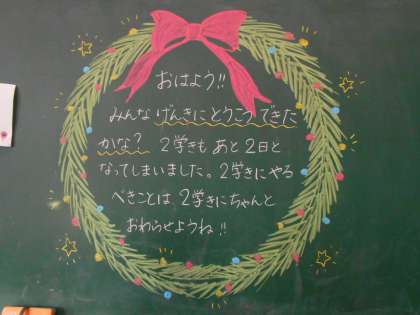 おはよう!!
みんなげんきにとうこうできた
かな? 2学きもあと2日と
なってしまいました。2学きにやる
べきことは2学きにちゃんと
おわらせようね!!